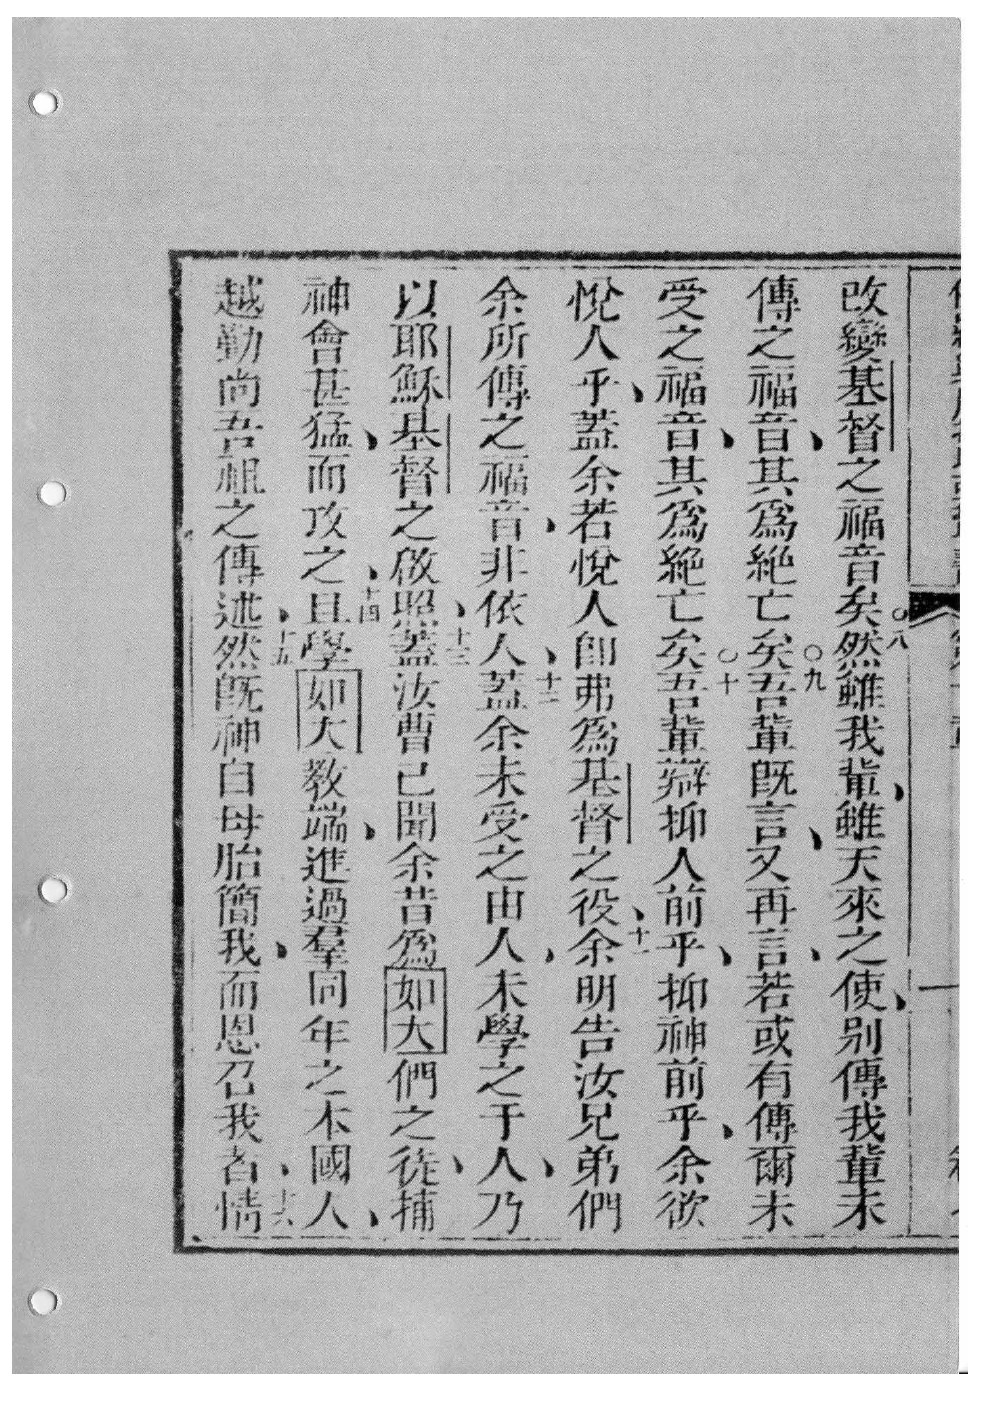 改變基督之福音矣〇八然雖我輩雖天來之使別傳我輩未
傳之福音其爲絕亡矣〇九吾輩旣言又再言若或有傳爾未
受之福音其爲絕亡矣〇十吾輩辯抑人前乎抑神前乎余欲
悅人乎蓋余若悅人卽弗爲基督之役十一余明告汝兄弟們
余所傳之福音非依人十二蓋余未受之由人未學之于人乃
以耶穌基督之啟照十三蓋汝曹已聞余昔爲如大們之徒捕
神會甚猛而攻之十四且學如大教端進過羣同年之本國人
越勤尚吾祖之傳述十五然旣神自母胎簡我而恩召我者十六情